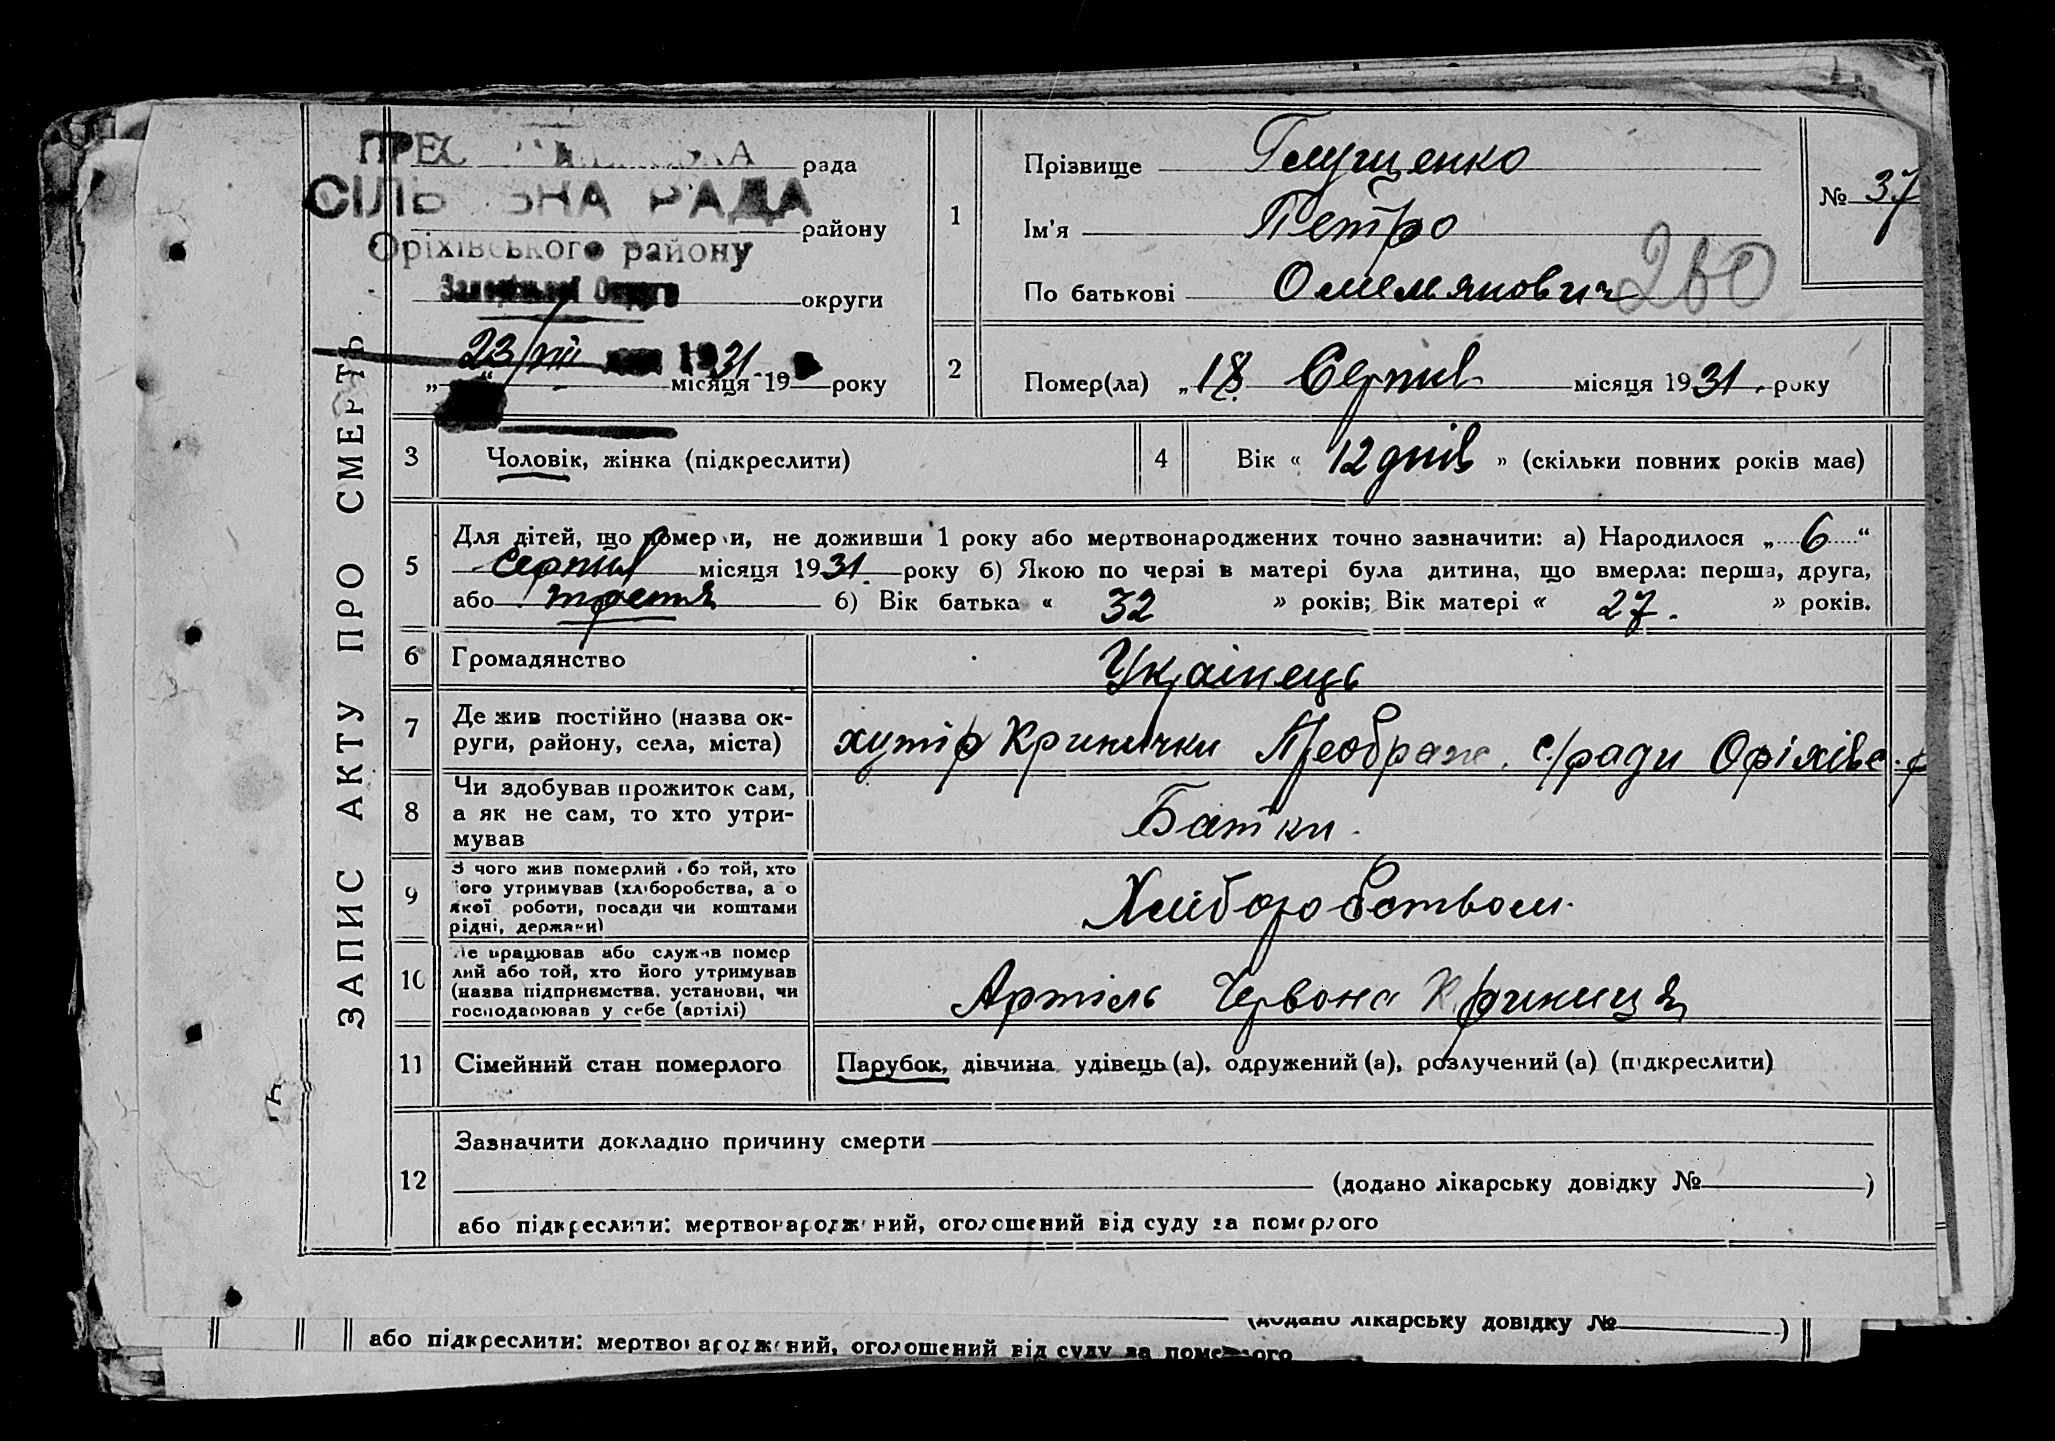 ЗАПИС АКТУ ПРО СМЕРТЬ
рада
СІЛЬ ЬНА РАДА
району
Оріхівського району
Запорізької Округи округи
23/VIII 1931
„ “ місяця 19 року
1
Прізвище Глущенко
Ім'я Петро
По батькові Омелянович
260
№ 37
2
Помер(ла) „18 Серпня місяця 1931 року
3
Чоловік, жінка (підкреслити)
4
Вік « 12 днів » (скільки повних років має)
5
Для дітей, що померли, не доживши 1 року або мертвонароджених точно зазначити: а) Народилося „ 6 “
серпня місяця 1931 року б) Якою по черзі в матері була дитина, що вмерла: перша, друга,
або третя б) Вік батька « 32 » років; Вік матері « 27. » років.
6
Громадянство
Українець
7
Де жив постійно (назва ок-
руги, району, села, міста)
хутір Кринички Преображ. с/ради Оріхівс. р
8
Чи здобував прожиток сам,
а як не сам, то хто утри-
мував
Батки.
9
З чого жив померлий або той, хто
його утримував (хліборобства, а о
якої роботи, посади чи коштами
рідні, держави)
Хліборобством.
10
Де працював або служив помер
лий або той, хто його утримував
(назва підприємства, установи, чи
господарював у себе (артілі)
Артіль Червона Криниця
11
Сімейний стан померлого
Парубок, дівчина удівець (а), одружений (а), розлучений (а) (підкреслити)
12
Зазначити докладно причину смерти
(додано лікарську довідку № )
або підкреслити: мертвонароджений, оголошений від суду за померлого
(додано лікарську довідку № )
або підкреслити: мертвонароджений, оголошений від суду за померлого